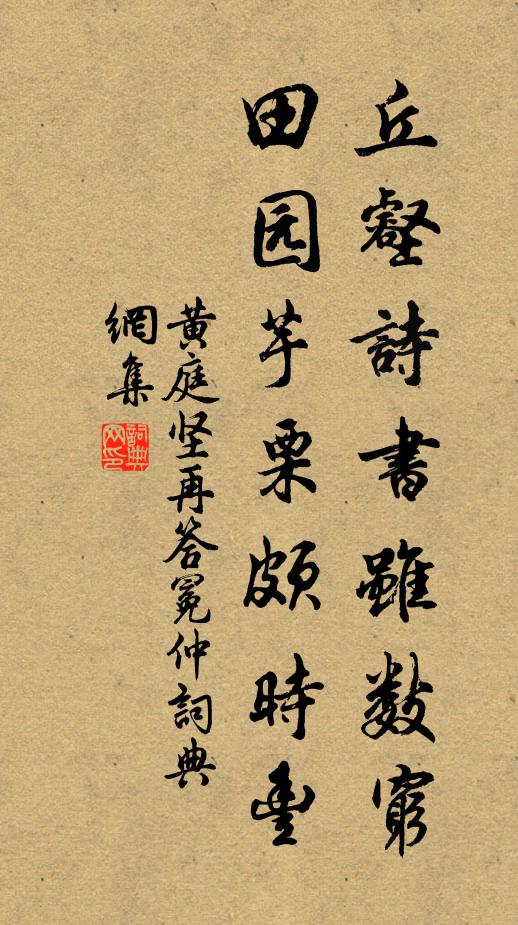 丘壑詩書雖数窮
田园芋栗頗時豊
黄庭坚再答冕仲詞典
網集
詞典网印